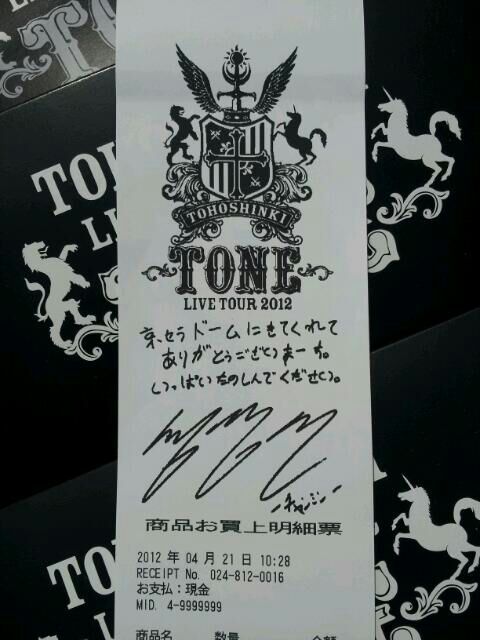 TOHOSHINKI
TONE
LIVE TOUR 2012
京セラドームにきてくれて
ありがとうございまーす。
いっぱいたのしんでくださいっ。
-チャンミン-
商品お買上明細票
2012 年 04 月 21 日 10:28
RECEIPT No. 024-812-0016
お支払：現金
MID. 4-9999999
商品名 数量 金額